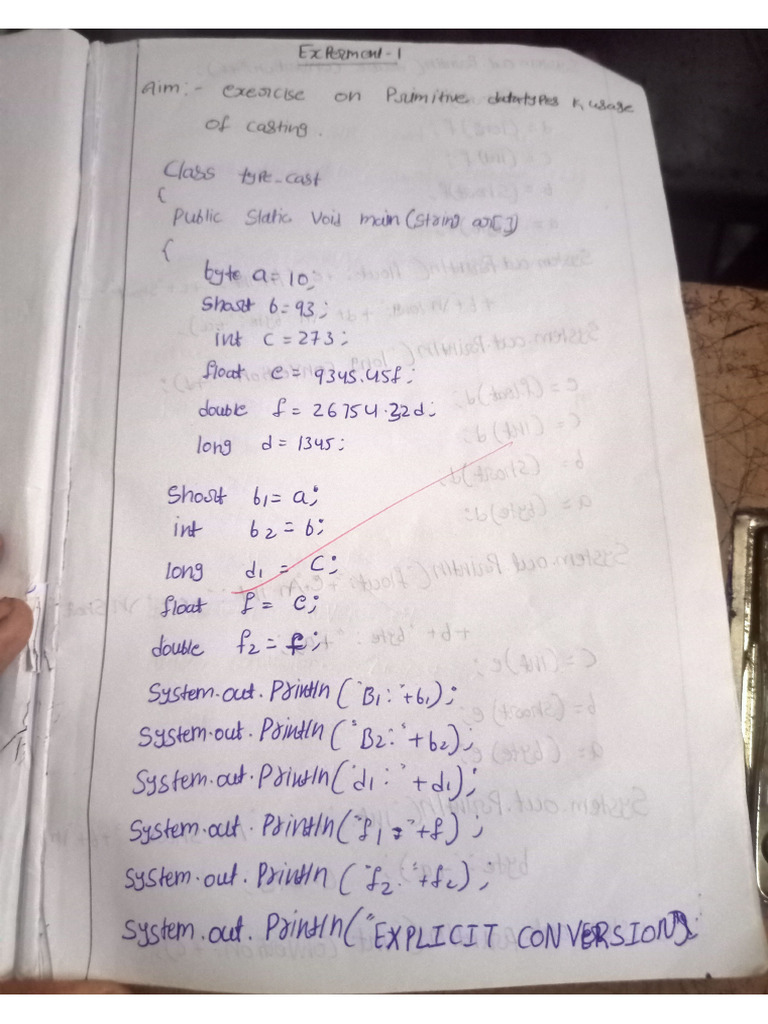 Experment-1
Aim:- exercise on Primitive datatypes &, usage
of casting.
Class type-cast
{
Public Static Void main(String ar[])
{
byte a=10;
Short b=93;
int c=273;
float e=9345.45f;
double f=26754.32d;
long d=1345;
Short b1=a;
int b2=b;
long d1=c;
float f=e;
double f2=f;
System.out.Println("B1:"+b1);
System.out.Println("B2:"+b2);
System.out.Println("d1:"+d1);
System.out.Println("f1="+f);
System.out.Println("f2:"+f2);
System.out.Println("EXPLICIT CONVERSION");